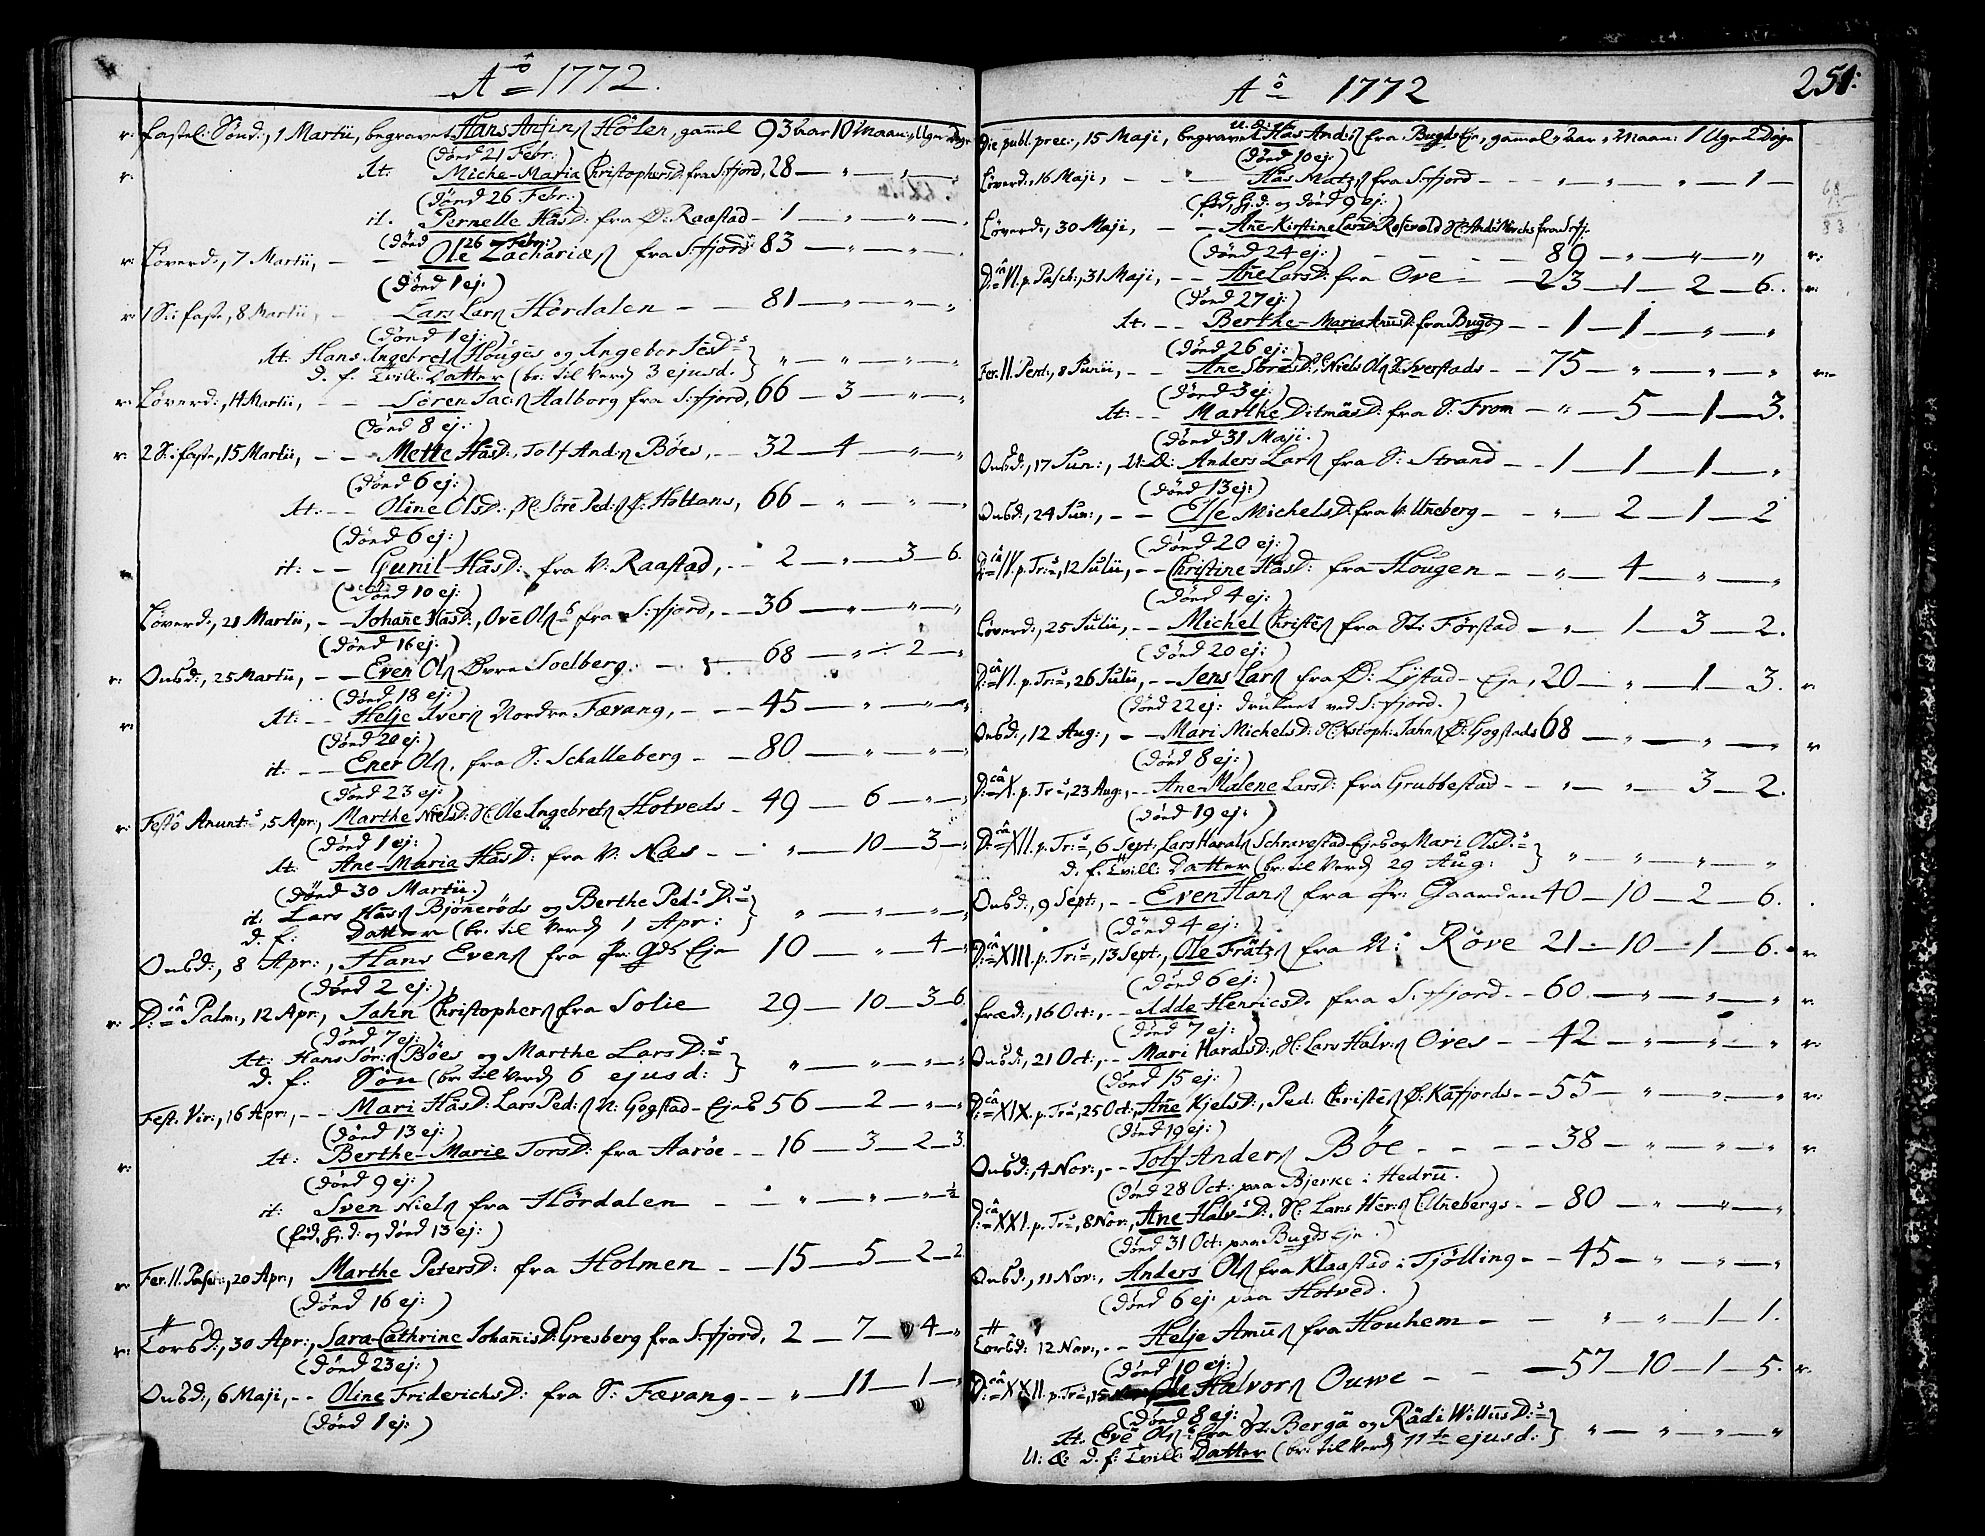 Aô 1772.
fastel: Sønd:, 1 Martii, begravet Hans Anfinß Hölen, gamel 93 Aar 10 Maan:, Uger Dage
(Død 21 Febr:)
It. Miche-Maria ChristophersD: fra S:fjord, 28 — " — " — "
(Død 26 Febr:)
it. Pernelle HãsD: fra Ø: Raastad — 1 — " — " — "
(Død 26 Febr:)
Løverd:, 7 Martii, — — Ole Zachariæß fra S:fjord: 83 — " — " — "
(Død 1 ej:)
1 S: faste, 8 Martii, — Lars Larß Hördalen — — 81 — " — " — "
(Død 1 ej:)
It. Hans Ingebretß Hougés og Ingebor D:s
d. f. Tvill: Datter (br: til Verdß 3 ejusd. } " — " — " — "
Løverd:, 14 Martii, — — Sören Jacß Halborg fra S:fjord, 66 — 3 — " — "
(Død 8 ej:)
2 S: faste, 15 Martii, — — Mette HãsD:, Tolf And:ß Böes, — 32 — 4 — " — "
(Død 6 ej:)
It: — — Oline OlsD:, H: Sörē Ped:ß Ø: Holtans, 66 — " — " — "
(Død 6 ej:)
it: — — Gunil HãsD: fra V: Raastad, — 2 — " — 3 — 6.
(Død 10 ej:)
Løverd:, 21 Martii, — — Johañe HãsD:, Ovē Olß fra S:fjord, — 36 — " — " — "
(Død 16 ej:)
Onsd:, 25 Martii, — — Even Olß Øvre Soelberg. — 68 — " — 2 — "
(Død 18 ej:)
It: — — Helje Iverß Nordre Færang, — — 45 — " — " — "
(Død 20 ej:)
it: — — Ener Olß, fra S: Schalleberg — — 80 — " — " — "
(Død 23 ej:)
Festô Anunt:s, 5 Apr:, Marthe NielsD: H: Ole Ingebretß Hotveds — 49 — 6 — " — "
(Død 1 ej:)
It: Ane-Maria HãsD: fra V: Næs — — " — 10 — 3 — "
(Død 30 Martii.)
it: Lars Hãsß Bjöneröds og Berthe Ped:s D:s
d. f: Datter (br: til Verdß 1 Apr: } " — " — " — "
Onsd:, 8 Apr:, Hans Evenß fra Pr: Gds Eje 10 — " — 4 — "
(Død 2 ej:)
D:câ Palm:, 12 Apr:, Jahn Christopherß fra Solie 29 — 10 — 3 — 6
(Død 7 ej:)
It: Hans Sör:ß Böes og Marthe Lars D:s
d. f: Sön (br: til Verdß 6 ejusd: } " — " — " — "
Fest. Vir:, 16 Apr:, — — Mari HãsD: Lars Ped:ß N: Gogstad-Ejes 56 — 2 — " — "
(Død 13 ej:)
It: Berthe-Marie TorsD: fra Aaröe — — 16 — 3 — 2 — 3.
(Død 9 ej:)
it: Sven Nielß fra Hördalen — — " — " — " — ½
(fød, hj:d: og død 13 ej:)
Fer. II. Pasch:, 20 Apr:, Marthe PetersD: fra Holmen — — 15 — 5 — 2 — 2.
(Død 16 ej:)
Torsd:, 30 Apr:, Sara-Cathrine JohañisD: Gresberg fra S:fjord, 2 — 7 — 4 — "
(Død 23 ej:)
Onsd:, 6 Maji, — — Oline FriderichsD: fra S: Færang — — " — 11 — 1 — "
(Død 1 ej:)
Aô 1772
251:
Die publ. prec:, 15 Maji, begravet U. Æ: Hãs And:ß fra Bugds Eje, gamel " Aar " Maan: 1 Uge 2 Dage
(Død 10 ej:)
Løverd:, 16 Maji, — — Hãs Matzß fra S:fjord — — " — " — " — 1 —
(fød, hj:d: og død 9 ej:)
Løverd:, 30 Maji, — — Añe-Kirstine LarsD: Rosevold H: And: fra S:fj:
(Død 24 ej:) — — — — 89 — " — " — "
D:câ VI. p. Pasch:, 31 Maji, — — Añe LarsD: fra Ove — 23 — 1 — 2 — 6.
(Død 27 ej:)
It: — — Berthe-Maria AmūsD: fra Bugds — — 1 — 1 — " — "
(Død 26 ej:)
Fer. II. Pent:, 8 Junii, — — Ane SörēsD:, Niels Olß D: Sverstads — — 75 — " — " — "
(Død 3 ej:)
It: — — Marthe DitmãsD: fra S: From — " — 5 — 1 — 3.
(Død 31 Maji.)
Onsd:, 17 Jun:, U: Æ: Anders Larß fra S: Strand — — 1 — 1 — 1 — "
(Død 13 ej:)
Onsd:, 24 Jun:, — — Else MichelsD: fra V: Uneberg — — " — 2 — 1 — 2
(Død 20 ej:)
D:câ IV. p. Tr:s, 12 Julii, — — Christine HãsD: fra Hougen — — " — 4 — " — "
(Død 4 ej:)
Løverd:, 25 Julii, — — Michel Christēß fra St: Förstad — " — 1 — 3 — 2.
(Død 20 ej:)
D:câ VI. p. Tr:s, 26 Julii, — — Jens Larß fra Ø: Lystad-Eje, 20 — " — 1 — 3.
(Død 22 ej: druknet ved S:fjord.)
Onsd:, 12 Aug:, — — Mari MichelsD: H: Xstoph: Jahnß Ø: Gogstads 68 — " — " — "
(Død 8 ej:)
D:câ X. p. Tr:s, 23 Aug:, — — Ane-Malene LarsD: fra Grubbestad — — " — " — 3 — 2.
(Død 19 ej:)
D:câ XII. p. Tr:s, 6 Sept:, Lars Haralß Schnavestad-Ejes og Mari OlsD:s
d. f. Tvill: Datter (br: til Verdß 29 Aug: } " — " — " — "
Onsd:, 9 Sept:, — — Even Hanß fra Pr: Gaarden 40 — 10 — 2 — 6.
(Død 4 ej:)
D:câ XIII. p. Tr:s, 13 Sept:, Ole Frãtzß fra N: Röve 21 — 10 — 1 — 6.
(Død 6 ej:)
fred:, 16 Oct:, — — Adde HenricsD: fra S:fjord — — 60 — " — " — "
(Død 7 ej:)
Onsd:, 21 Oct:, — — Mari HaralsD:, H: Lars Halv:ß Oves — — 42 — " — " — "
(Død 15 ej:)
D:câ XIX. p. Tr:s, 25 Oct:, Añe KjelsD:, Ped: Christēß Ø: Kafjords — — 55 — " — " — "
(Død 19 ej:)
Onsd:, 4 Nov:, — — Tolf Anderß Böe — — — 38 — " — " — "
(Død 28 Oct: paa Bjerke i Hedrum.)
D:câ XXI. p. Tr:s, 8 Nov:, Ane Halv:sD:, H: Lars Hen:ß Unebergs — — 80 — " — " — "
(Død 31 Oct: paa Bugds Eje.)
Onsd:, 11 Nov:, Anders Olß fra Klaastad i Tjölling — — 45 — " — " — "
(Død 6 ej: paa Hotved.)
Torsd: 12 Nov:, — — Helje Amūß fra Houhem — — " — " — 1 — 1.
(Død 10 ej:)
D:câ XXII. p. Tr:s, 15 Nov: Ole Halvorß Ouwe — — 57 — 10 — 1 — 5.
(Død 8 ej:)
It. Evē Olß fra St: Bergã og Rãdi D:s
U: Æ: d. f: Tvill: Datter (br: til Verdß 11te ejusd: } " — " — " — "